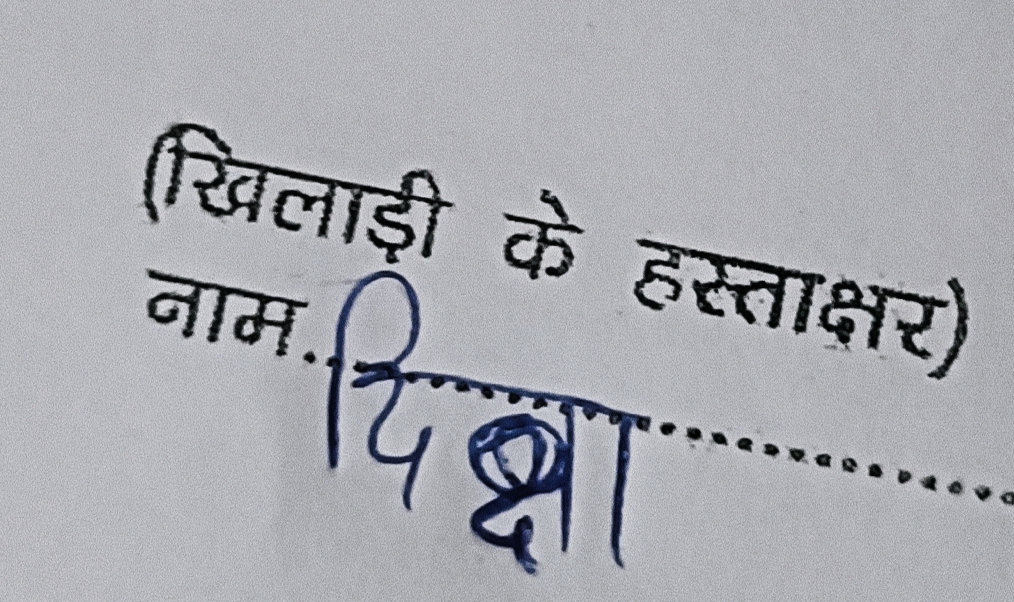 (खिलाड़ी के हस्ताक्षर)
नाम.......... दिक्षा